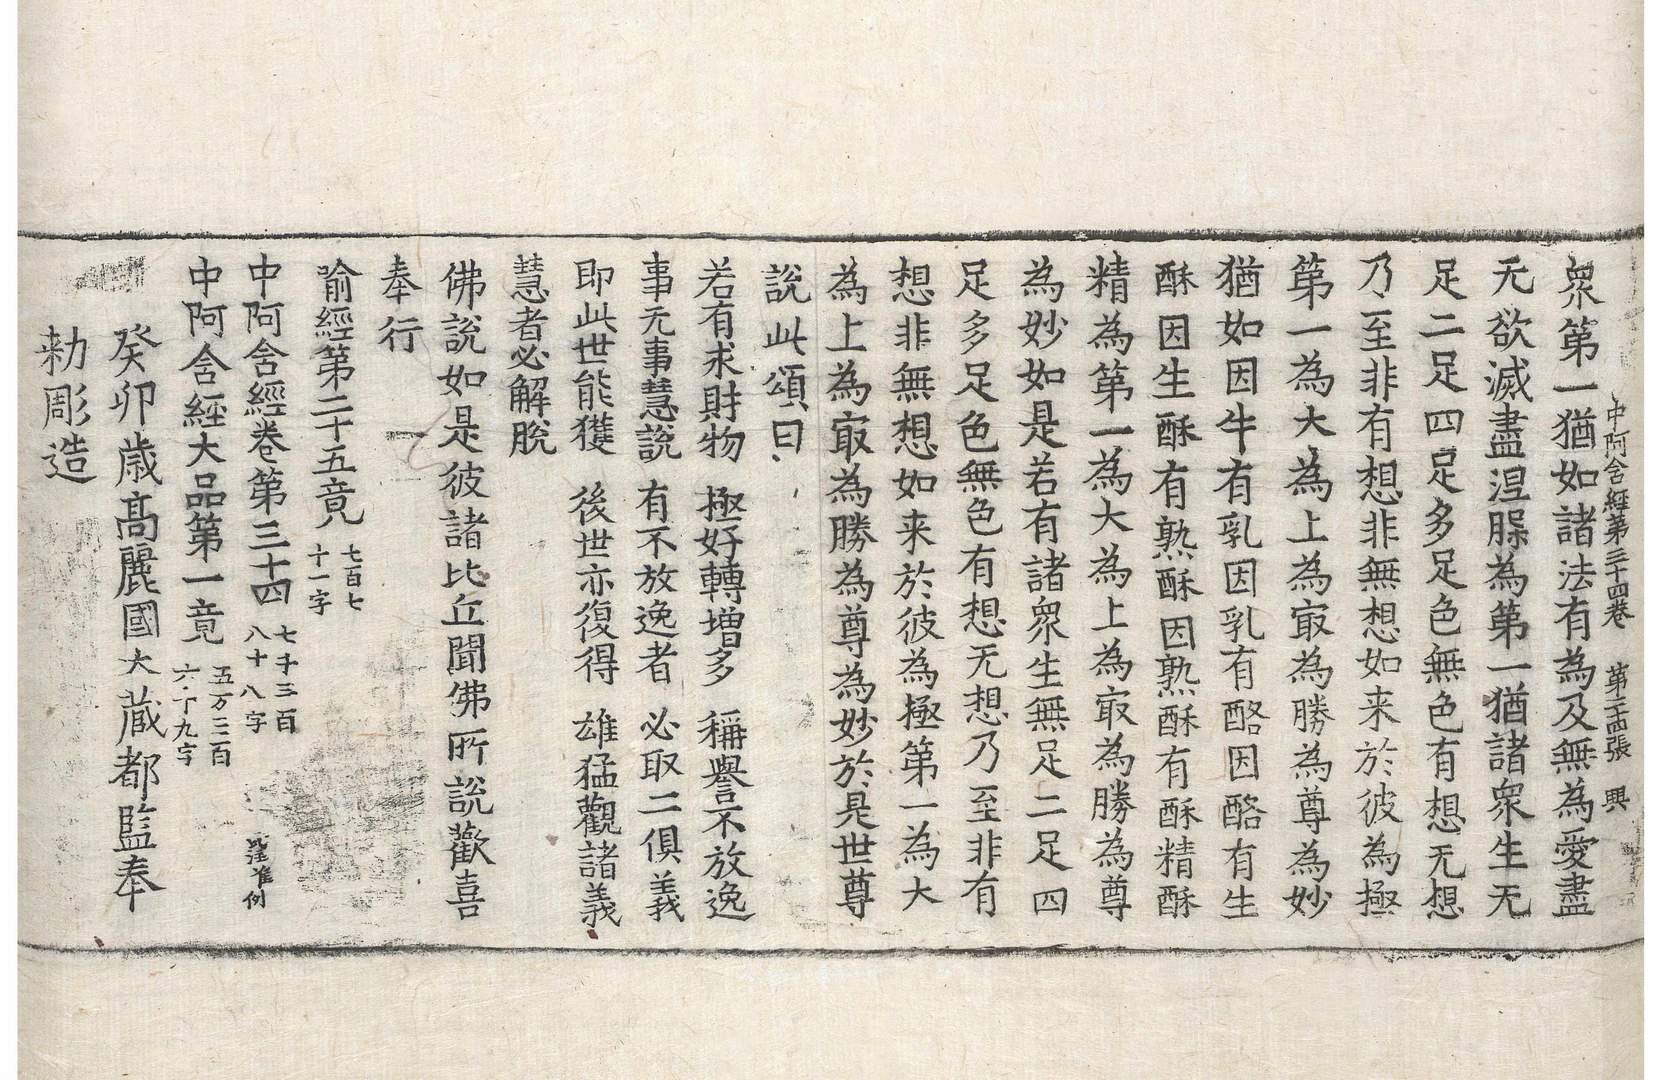 中阿含經第三十四卷　第二十四張　興
衆第一猶如諸法有為及無為愛盡
无欲滅盡涅槃為第一猶諸衆生无
足二足四足多足色無色有想无想
乃至非有想非無想如来於彼為極
第一為大為上為㝡為勝為尊為妙
猶如因牛有乳因乳有酪因酪有生
酥因生酥有熟酥因熟酥有酥精酥
精為第一為大為上為㝡為勝為尊
為妙如是若有諸衆生無足二足四
足多足色無色有想无想乃至非有
想非無想如来於彼為極第一為大
為上為㝡為勝為尊為妙於是世尊
說此頌曰
若有求財物　極好轉增多　稱譽不放逸
事无事慧說　有不放逸者　必取二俱義
即此世能獲　後世亦復得　雄猛觀諸義
慧者必解脫
佛說如是彼諸比丘聞佛所說歡喜
奉行
喻經第二十五竟　七百七
十一字
中阿含經卷第三十四　七千三百
八十八字
中阿含經大品第一竟　五万三百
六十九字
癸卯歳高麗國大蔵都監奉
勑彫造